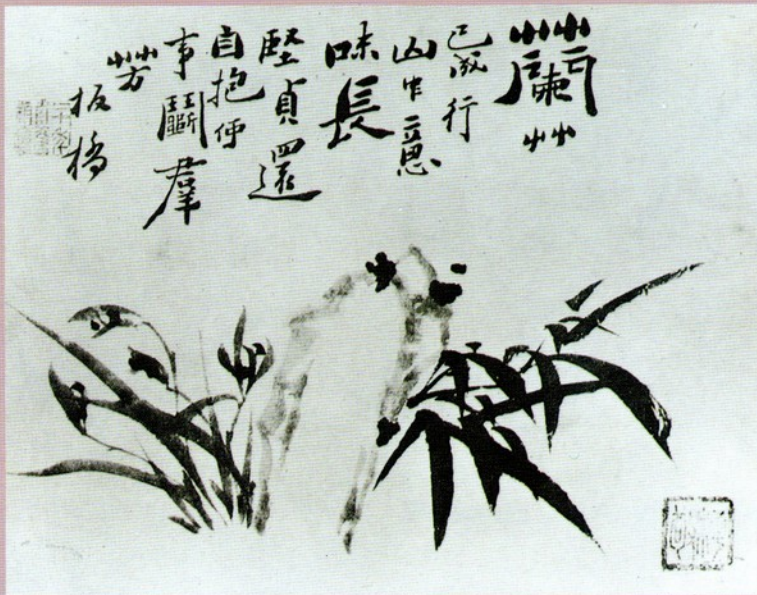 蘭艸
已成行
山中意
味長
堅貞還
自抱何
事鬭羣
芳
板橋